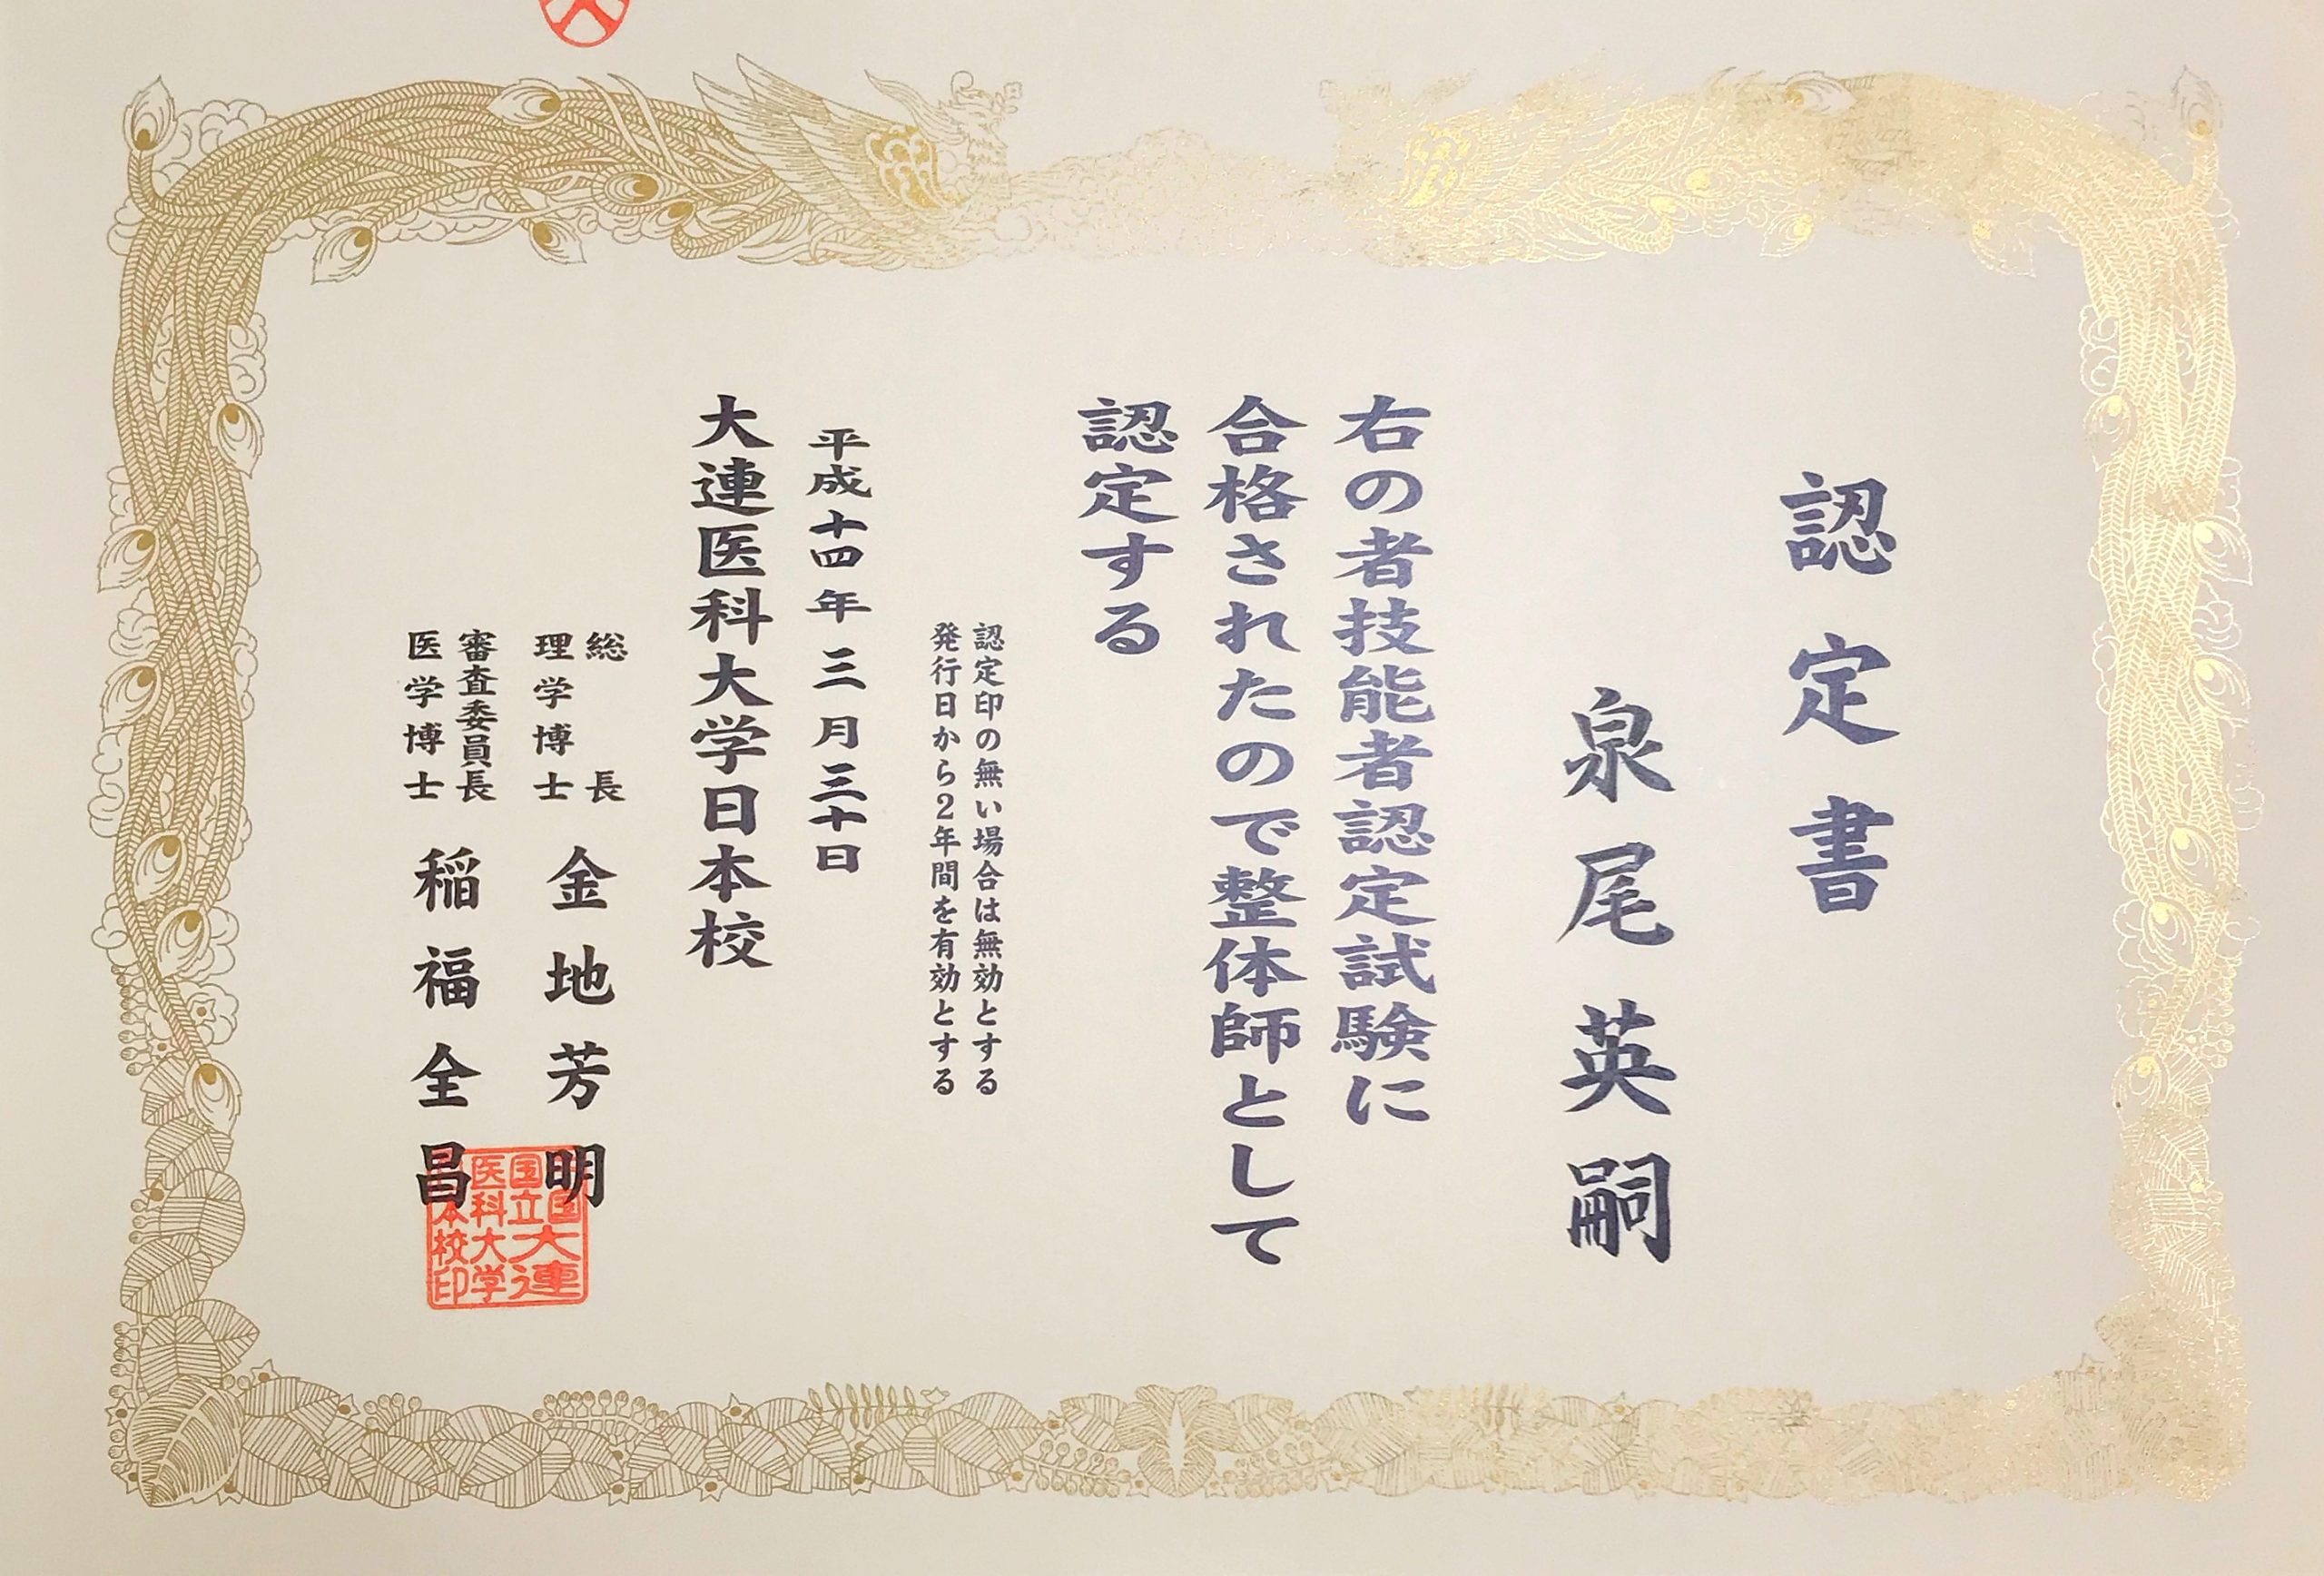 認定書
泉尾英嗣
右の者技能者認定試験に
合格されたので整体師として
認定する
認定印の無い場合は無効とする
発行日から2年間を有効とする
平成十四年三月三十日
大連医科大学日本校
総長
理学博士 金地芳明
審査委員長
医学博士 稲福全昌
国立大連
医科大学
本校印